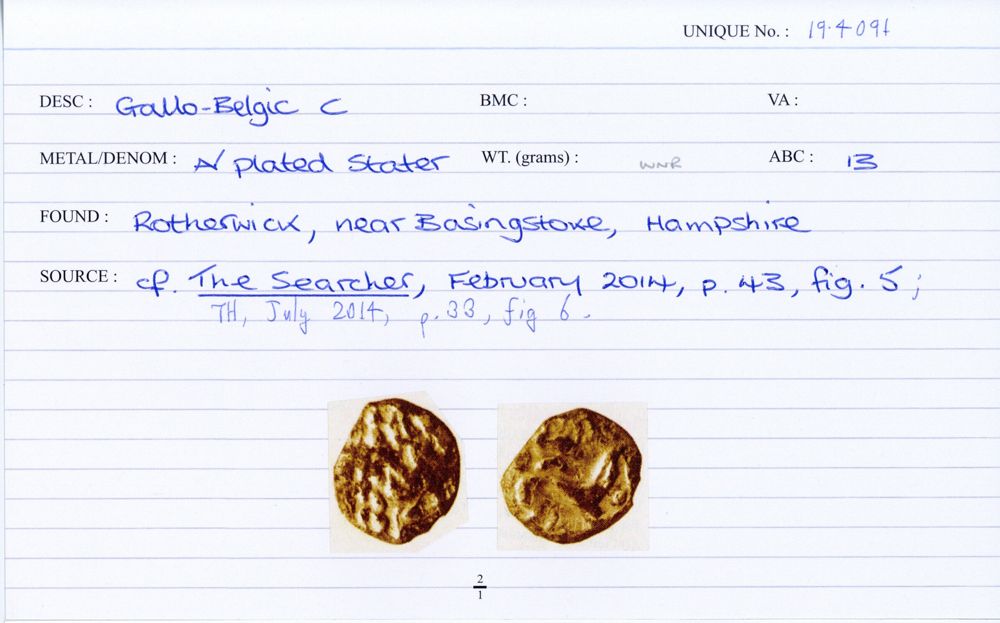 UNIQUE No. : 19.4091
DESC : Gallo-Belgic C BMC : VA :
METAL/DENOM : A/ plated Stater WT. (grams) : WNR ABC : 13
FOUND : Rotherwick, near Basingstoke, Hampshire
SOURCE : cf. The Searcher, February 2014, p. 43, fig. 5;
TH, July 2014, p.33, fig 6.
2
1